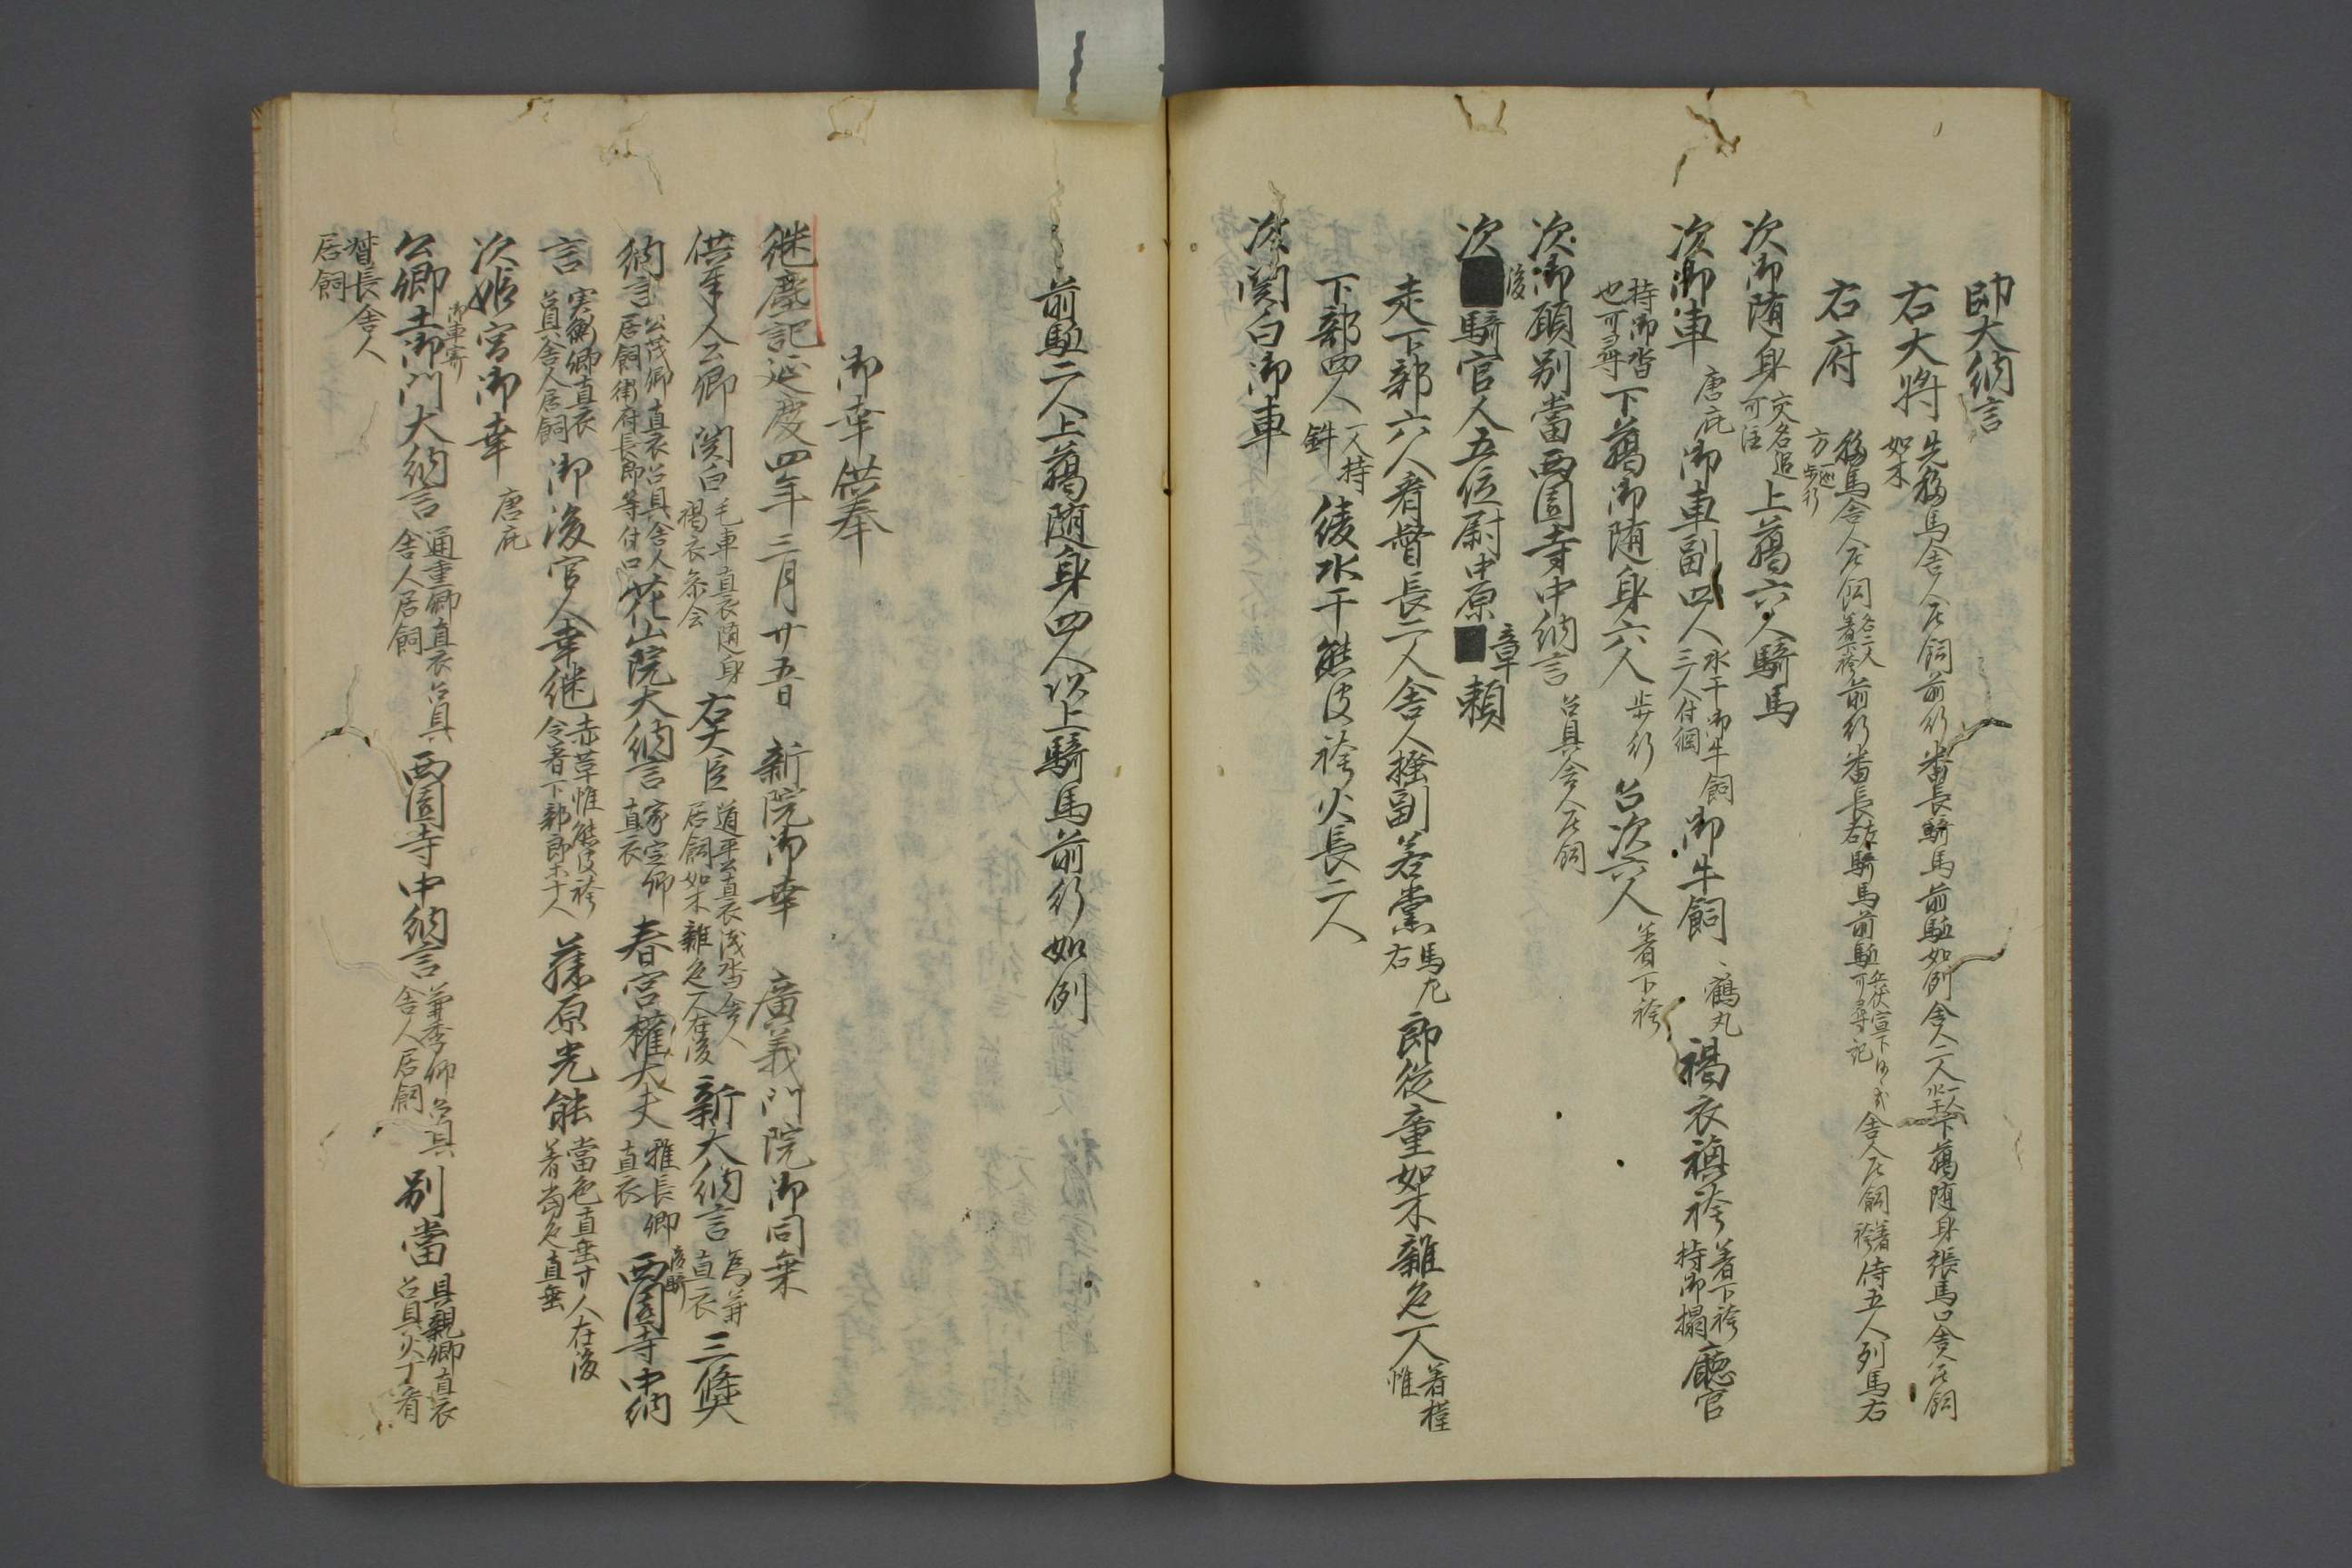 帥大納言
右大将 先移馬舎人居飼前行番長騎馬前駈如例舎人二人 一人水干 下﨟随身張馬口舎人居飼 如木
右府 移馬舎人居飼 各二人着襖袴 前行番長 左右 騎馬前駈 可尋記 舎人居飼 着袴 侍五人列馬右方 歩行
次御随身 交名追可注 上﨟六人騎馬
次御車 唐庇 御車副四人 水干御牛飼三人付綱 御牛飼 鶴丸 褐衣襖袴 着下袴持御榻 廳官
持御沓也可尋 下﨟御随身六人 歩行 召次六人 着下袴
次御厩別當西園寺中納言 召具舎人居飼
次後騎官人五位尉中原章頼
走下部六人看督長二人舎人搔副若黨 馬左右 郎従童如木雑色一人 着樺帷
下部四人 一人持鉾 綾水干熊皮袴火長二人
次関白御車
前駈二人上﨟随身四人以上騎馬前行如例
御幸供奉
継塵記延慶四年三月廿五日 新院御幸 廣義門院御同車
供奉人公卿 関白 毛車直衣随身褐衣参会 右大臣 道平公直衣浅沓舎人居飼如木雑色一人在後 新大納言 為兼直衣 三條大
納言 公茂卿直衣召具舎人居飼衛府長郎等付口 花山院大納言 家定卿直衣 春宮權大夫 雅長卿直衣 後騎 西園寺中納
言 実衡卿直衣召具舎人居飼 御後官人章継 赤草帷熊皮袴令着下部郎等十人 藤原光能 當色直垂廿人在後着當色直垂
次姫宮御幸 唐庇
公卿 御車寄 土御門大納言 通重卿直衣召具舎人居飼 西園寺中納言 兼季卿召具舎人居飼 別當 具親卿直衣召具火丁看
督長舎人居飼